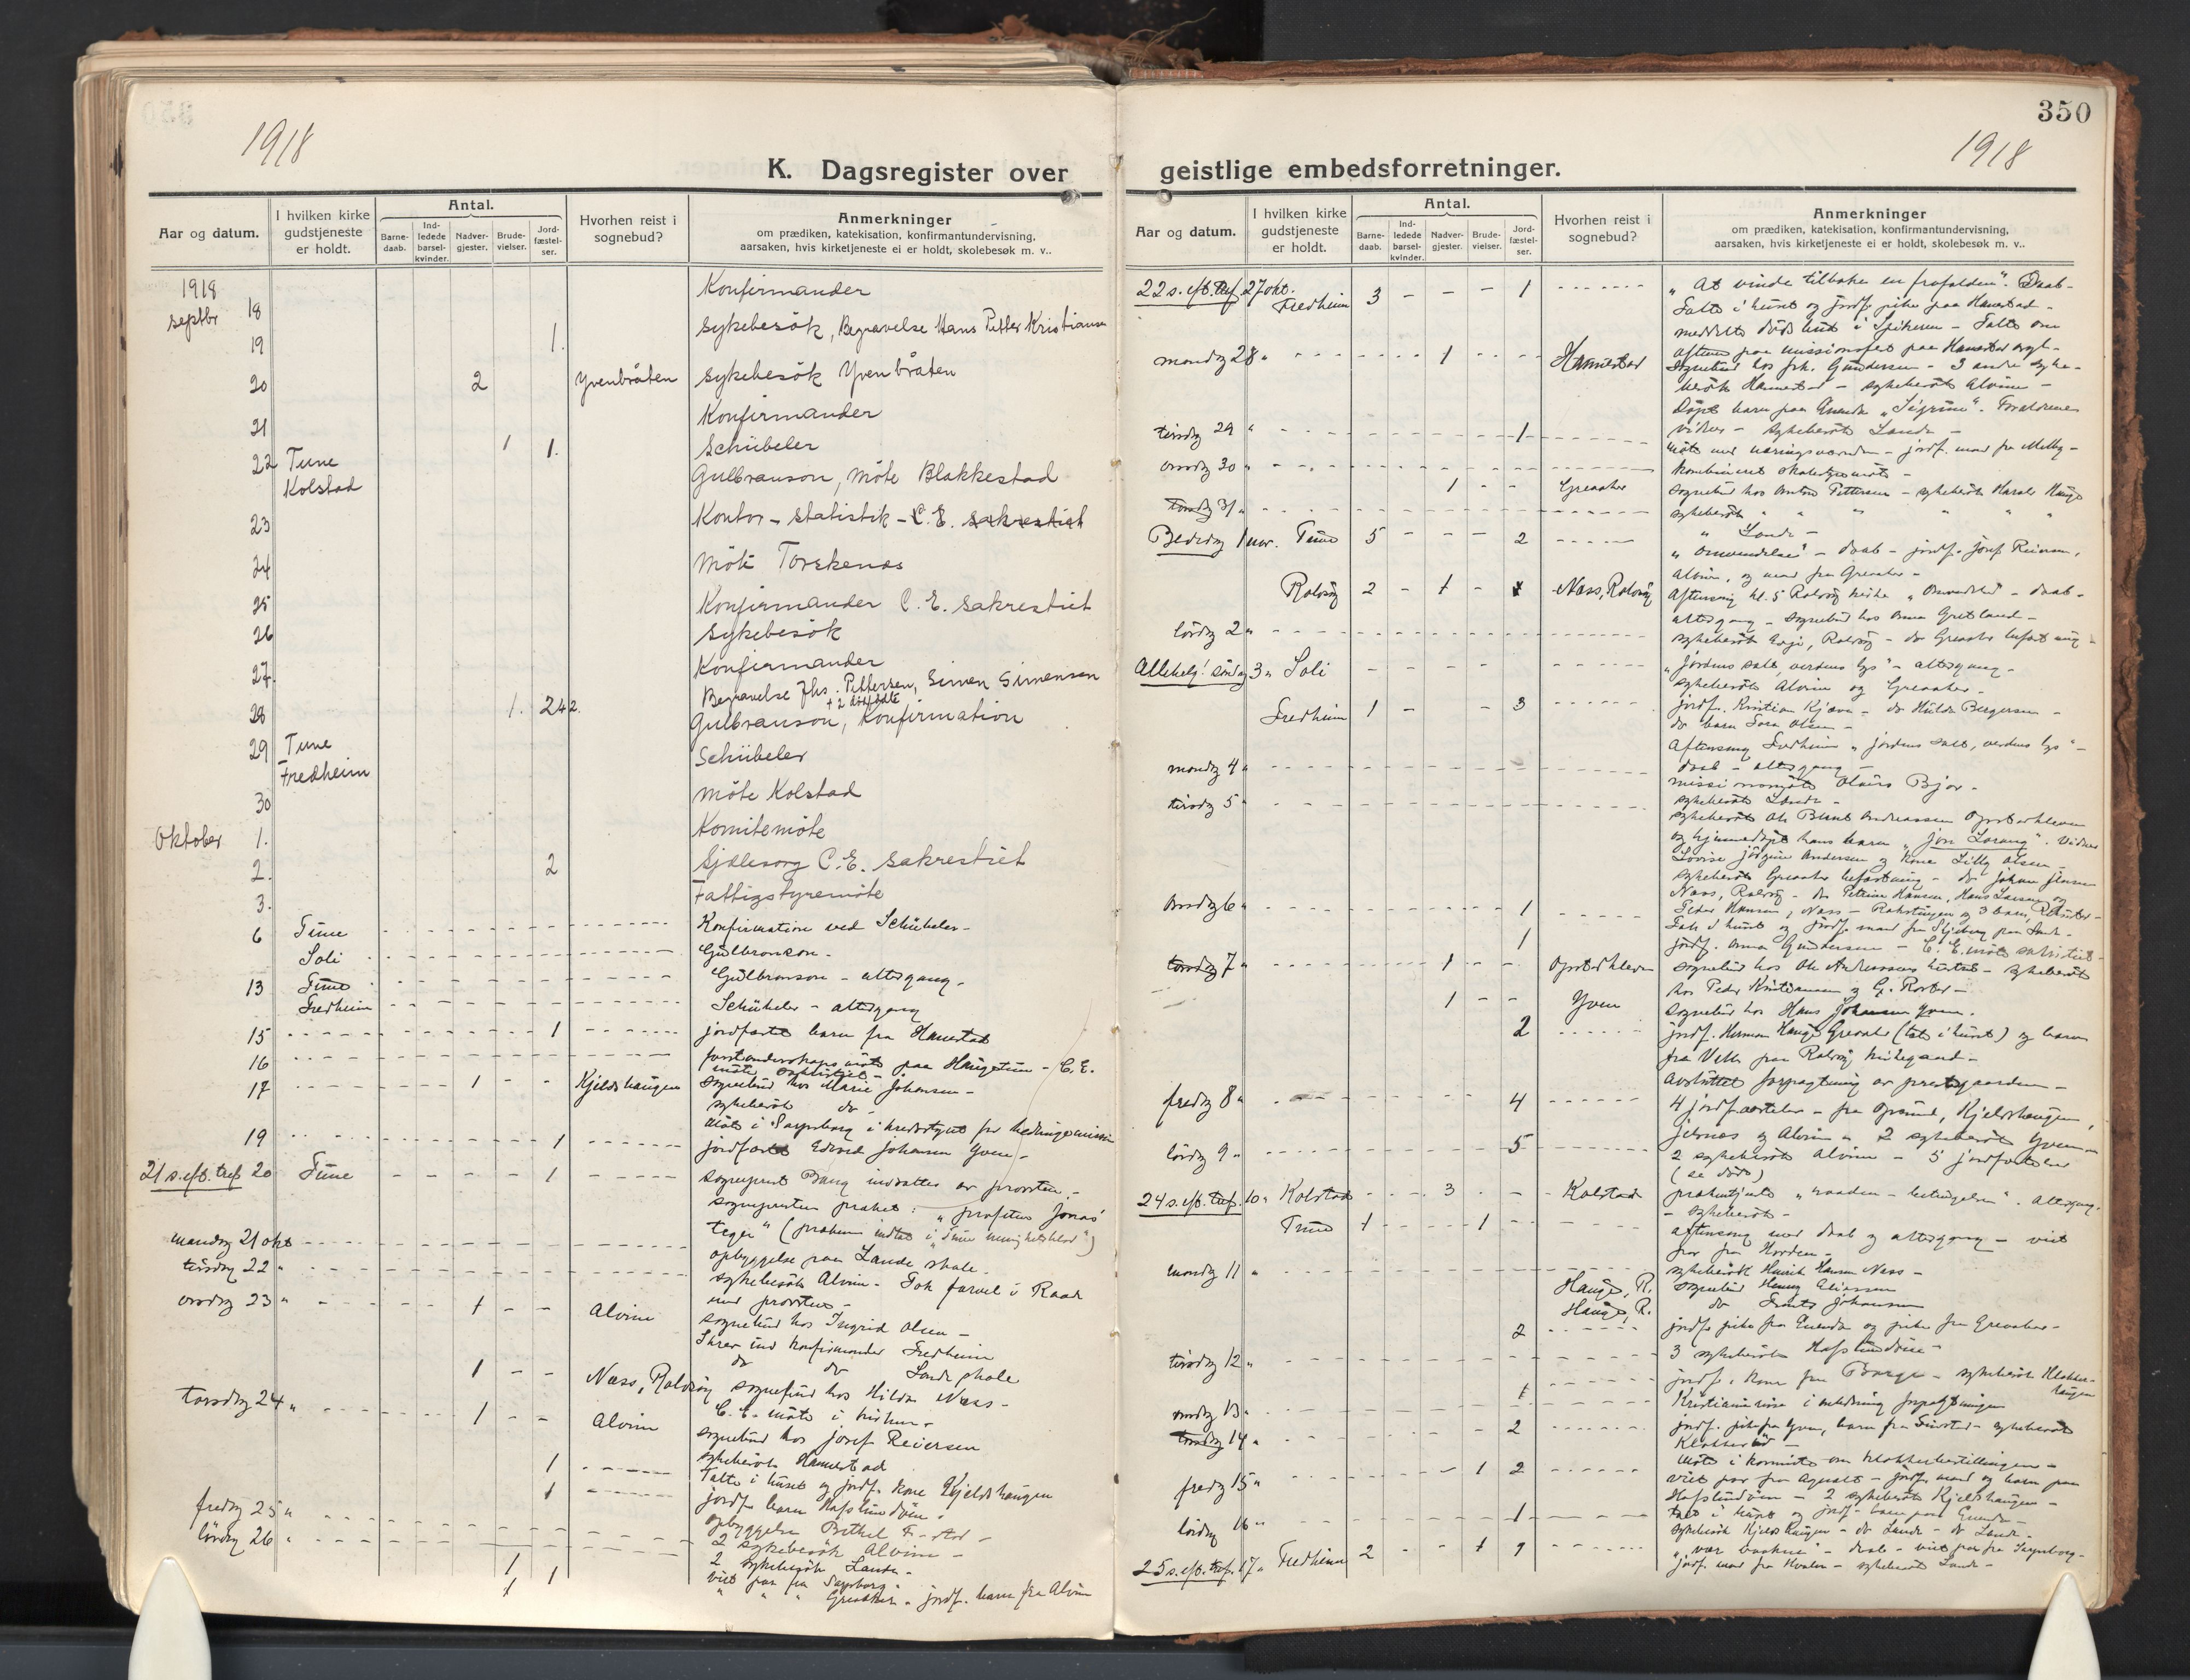 350
1918
1918
K. Dagsregister over geistlige embedsforretninger.
Aar og datum.
I hvilken kirke gudstjeneste er holdt.
Antal.
Barne-daab.
Ind-ledede barsel-kvinder.
Nadver-gjester.
Brude-vielser.
Jord-fæstel-ser.
Hvorhen reist i sognebud?
Anmerkninger
om prædiken, katekisation, konfirmantundervisning,
aarsaken, hvis kirketjeneste ei er holdt, skolebesøk m. v..
1918
septbr 18 Konfirmander
19 1. Sykebesök, Begravelse Hans Petter Kristiansen
20 2 Yvenbråten Sykebesök Yvenbråten
21 Konfirmander
22 Tune 1 1. Schübeler
Kolstad Gulbranson, Möte Blakkestad
23 Kontor - Statistik - C.E. sakrestiet
24 Möte Torskenæs
25 Konfirmander C.E. Sakrestiet
26 Sykebesök
27. Konfirmander
28 1. 24 2. Begravelse Jhs. Pettersen, Simen Simensen
+ 2 dödfödte
29 Tune Gulbranson, Konfirmation
Fredheim Schübeler
30 Möte Kolstad
Oktober 1. Komitemöte
2. 2 Sjælesorg C.E. Sakrestiet
3. Fattigstyremöte
6 Tune Konfirmation ved Schübeler -
Soli Gulbranson -
13 Tune Gulbranson - altergang.
Fredheim Schübeler - altergang
15 1 jordfæstet barn fra Hannestad
16 paa Haugetun - C.E.
møte
17 1 - - Kjeldshaugen sognebud hos Marie Johansen -
sykebesök do -
møte i Sarpsborg i kredsstyret for hedningemission
19 1 jordfæstet Edvard Johansen Yven -
21 s. eft. tref. 20 Tune 1 sogneprest Bang indsattes av provsten -
sognepresten præket: "profeten Jonas'
tegn" (præken indtat i "Tune menighetsblad")
mandag 21 okt opbyggelse paa Lande skole -
tirsdag 22 " sykebesök Alvim - Tok farvel i Raade
med provsten -
onsdag 23 " 1 - - Alvim sognebud hos Ingrid Olsen -
Skrev ind konfirmander Fredheim
do do Lande skole
1 - - Næss, Rolvsöy sognebud hos Hilda Næss -
torsdag 24 " C.E. møte i
1 - - Alvim sognebud hos Josef Reiersen
sykebesök Hannestad
1 Talte i huset og jordf. kone Kjeldshaugen
1 jordf. barn Hafslundsöen -
fredag 25 " opbyggelse Bethel F-stad -
lördag 26 " 2 sykebesök Alvim -
2 sykebesök Lande -
1 1 viet par fra Sarpsborg -
1 " " " Greaaker - jordf. barn fra Alvim
Aar og datum.
I hvilken kirke gudstjeneste er holdt.
Antal.
Barne-daab.
Ind-ledede barsel-kvinder.
Nadver-gjester.
Brude-vielser.
Jord-fæstel-ser.
Hvorhen reist i sognebud?
Anmerkninger
om prædiken, katekisation, konfirmantundervisning,
aarsaken, hvis kirketjeneste ei er holdt, skolebesøk m. v..
22 s. eft. tref. 27 okt. Fredheim 3 - - - 1 "At vinde tilbake en frafalden". Daab -
Talte i huset og jordf. pike paa Hannestad -
meddelte dödsbud i - Talte om
aftenen paa missionsfest paa Hannestad
mandag 28 " 1 Hannestad sognebud hos frk. Gundersen - 3 andre syke-
besök Hannestad - sykebesök Alvim -
Döpt barn paa "Sigrun". Forældrene
tirsdag 29 " 1 vidner - sykebesök Lande -
møte med - jordf. mand fra
onsdag 30 " kombineret møte -
1 - - Greaaker sognebud hos Anton Pettersen - sykebesök Harald Hauge
torsdag 31 " sykebesök " " " " "
" Lande -
Bededag 1 nov. Tune 5 - - - 2 "Omvendelse" - daab - jordf. Josef Reiersen,
Alvim, og mand fra Greaaker -
Rolvsöy 2 - 1 - Næss, Rolvsöy Aftensang kl. 5 Rolvsöy kirke "Omvendelse" - daab -
altergang - sognebud hos Anna Gretland -
lördag 2 " sykebesök Rolvsöy - do Greaaker
Allehelg. söndag 3 " Soli "Jordens salt, verdens lys" - altergang -
sykebesök Alvim og Greaaker -
Fredheim 1 - - 3 jordf. Kristian - do Hulda Bergersen -
do barn Olsen -
Aftensang Fredheim "jordens salt, verdens lys" -
daab - altergang -
mandag 4 " missionsmøte Bjor -
tirsdag 5 " sykebesök Lande -
sykebesök Ole Bernt Andreassen Opstadkleven
og hjemmedöpt hans barn "Jon Lorang". Vidner
Lovise Andersen og kone Lilly Olsen -
sykebesök Greaaker befæstning - do Johan Jensen
Næss, Rolvsöy - do Petrine Hansen, Hans Larsen og
onsdag 6 " 1 Peder Hansen, Næss -
Talt i huset og jordf. mand fra
1 jordf. Anna Gundersen - C.E. møte sakristiet -
torsdag 7 " 1 - - Opstadkleven sognebud hos Ole Andreassens hustru - sykebesök
hos Peder Kristiansen og -
1 - - Yven sognebud hos Hans Johansen Yven.
2 jordf. Herman Hauge Greaaker (talt i huset) og barn
fra paa Rolvsöy kirkegaard -
Avsluttet forpagtning av prestegaarden -
fredag 8 " 4 4 jordfæstelser - fra Opsund, Kjeldshaugen,
og Alvim - 2 sykebesök Yven -
lördag 9 " 5 2 sykebesök Alvim - 5 jordfæstelser
(se döde)
24 s. eft. tref. 10 " Kolstad 3 - - Kolstad altergang -
- sykebesök -
Tune 1 1 aftensang med daab og altergang - viet
par fra -
mandag 11 " sykebesök Henrik Hansen Næss -
Hauge, R. sognebud Henny Eliassen
Hauge, R. do Johansen
2 jordf. pike fra og pike fra Greaaker -
tirsdag 12 " 3 sykebesök Hafslundsöen -
1 jordf. kone fra Borge - sykebesök Klokker-
haugen
onsdag 13 " i anledning forpagtningen
torsdag 14 " 2 jordf. pike fra Yven, barn fra - sykebesök
møte i om klokkerbestillingen -
fredag 15 " 1 2 viet par fra - jordf. mand og barn paa
Hafslundsöen - 2 sykebesök Kjeldshaugen -
lördag 16 " 1 talt i huset og jordf. barn paa -
sykebesök Kjeldshaugen - do Lande - do Lande -
25 s. eft. tref. 17 " Fredheim 2 - - 1 1 - daab - viet par fra Sarpsborg -
jordf. mand fra Hvaler - sykebesök Lande -